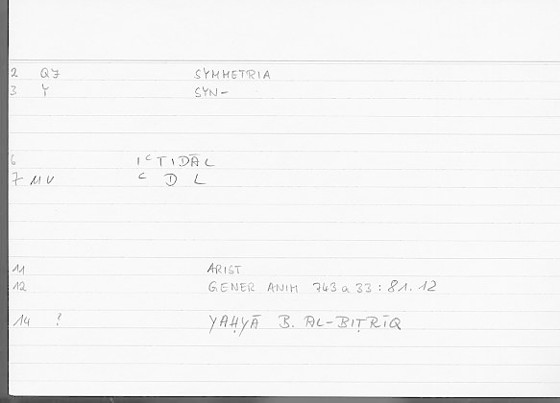 2 QJ SYMMETRIA
3 Y SYN-
6 IʿTIDĀL
7 MV ʿ D L
11 ARIST
12 GENER ANIM 743a33:81.12
14 ! YAḤYĀ B. AL-BIṬRĪQ